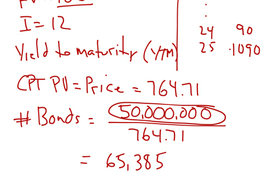 I = 12
Yield to maturity (YTM)
24 90
25 1090
CPT PV = Price = 764.71
# Bonds = 50,000,000
764.71
= 65,385